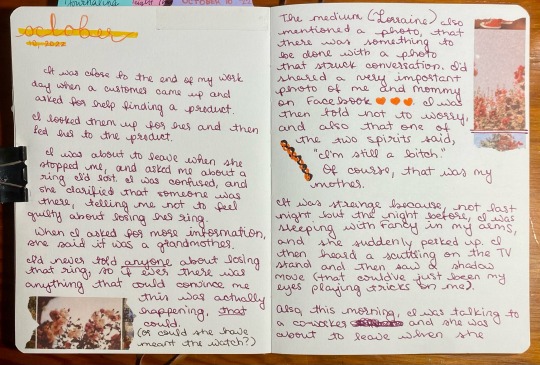 Journaling
OCTOBER 10 '22
october
10, 2022
It was close to the end of my work
day when a customer came up and
asked for help finding a product.
I looked them up for her and then
led her to the product.
I was about to leave when she
stopped me, and asked me about a
ring I'd lost. I was confused, and
she clarified that someone was
there, telling me not to feel
guilty about losing her ring.
When I asked for more information,
she said it was a grandmother.
I'd never told anyone about losing
that ring, so if ever there was
anything that could convince me
this was actually
happening, that
could.
(or could she have
meant the watch?)
The medium (Lorraine) also
mentioned a photo, that
there was something to
be done with a photo
that struck conversation. I'd
shared a very important
photo of me and mommy
on Facebook 🧡🧡🧡. I was
then told not to worry,
and also that one of
the two spirits said,
"I'm still a bitch."
Of course, that was my
mother.
It was strange because, not last
night but the night before, I was
sleeping with Fancy in my arms,
and she suddenly perked up. I
then heard a scuttling on the TV
stand and then saw a shadow
move (that could've just been my
eyes playing tricks on me).
Also, this morning, I was talking to
a coworker and she was
about to leave when she